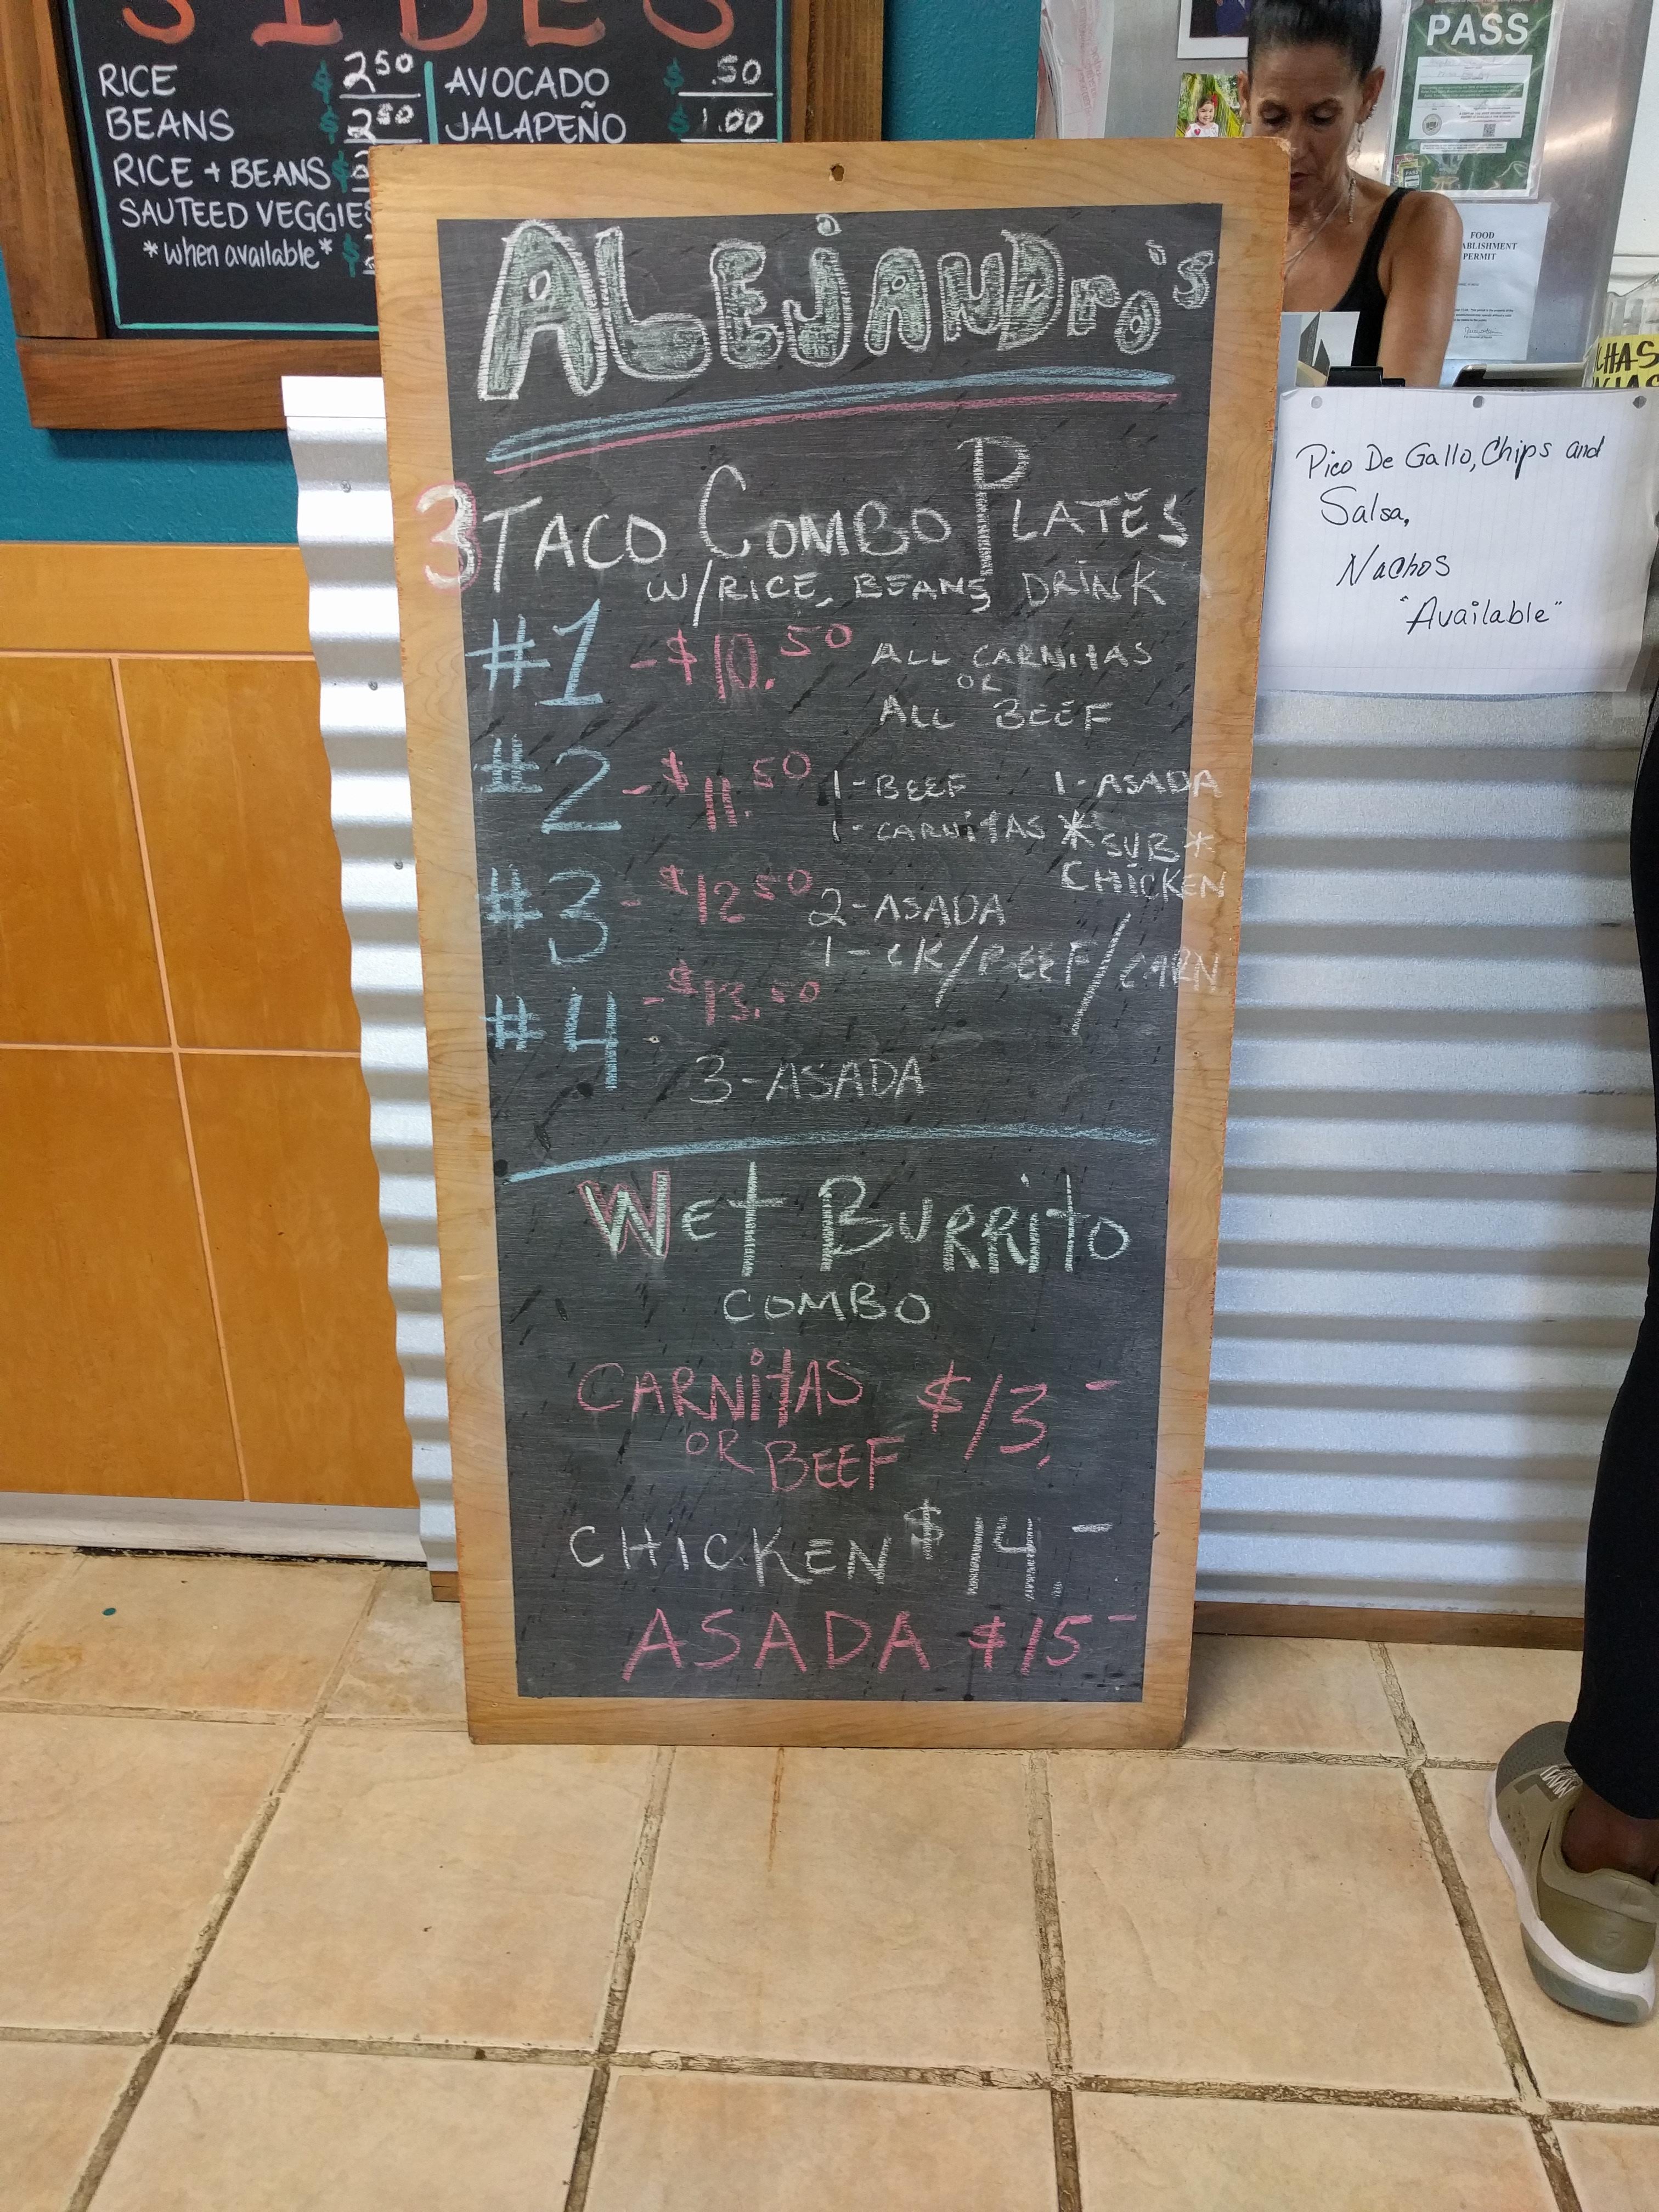 SIDES
RICE $2.50
BEANS $2.50
RICE + BEANS $
SAUTEED VEGGIES
*when available* $
AVOCADO $.50
JALAPEÑO $1.00
ALEJANDRO'S
3 TACO COMBO PLATES
W/RICE, BEANS, DRINK
#1 - $10.50 ALL CARNITAS
OR
ALL BEEF
#2 - $11.50 1-BEEF 1-ASADA
1-CARNITAS *SUB*
CHICKEN
#3 - $12.50 2-ASADA
1-CK/BEEF/CARN
#4 - $13.50
3-ASADA
WET BURRITO
COMBO
CARNITAS $13.-
OR BEEF
CHICKEN $14.-
ASADA $15-
PASS
FOOD
ABLISHMENT
PERMIT
Pico De Gallo, Chips and
Salsa,
Nachos
"Available"